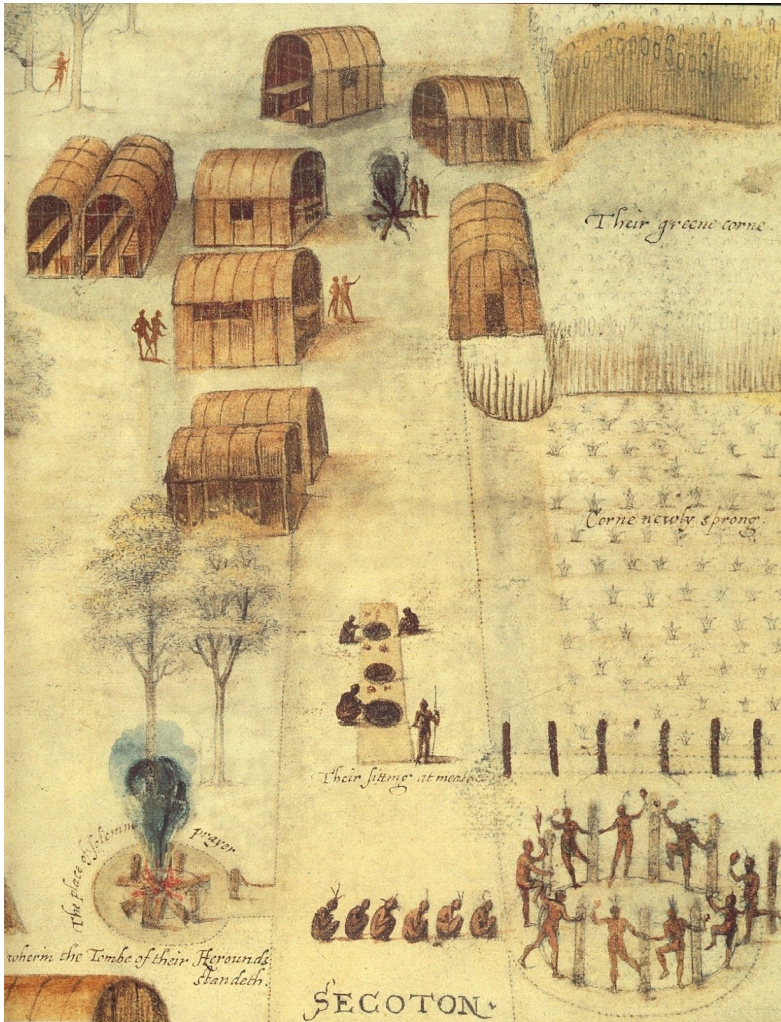 Their greene corne.
Corne newly sprong.
Their sitting at meate.
The place of solemne prayer
wherin the Tombe of their Herounds
standeth.
SECOTON.